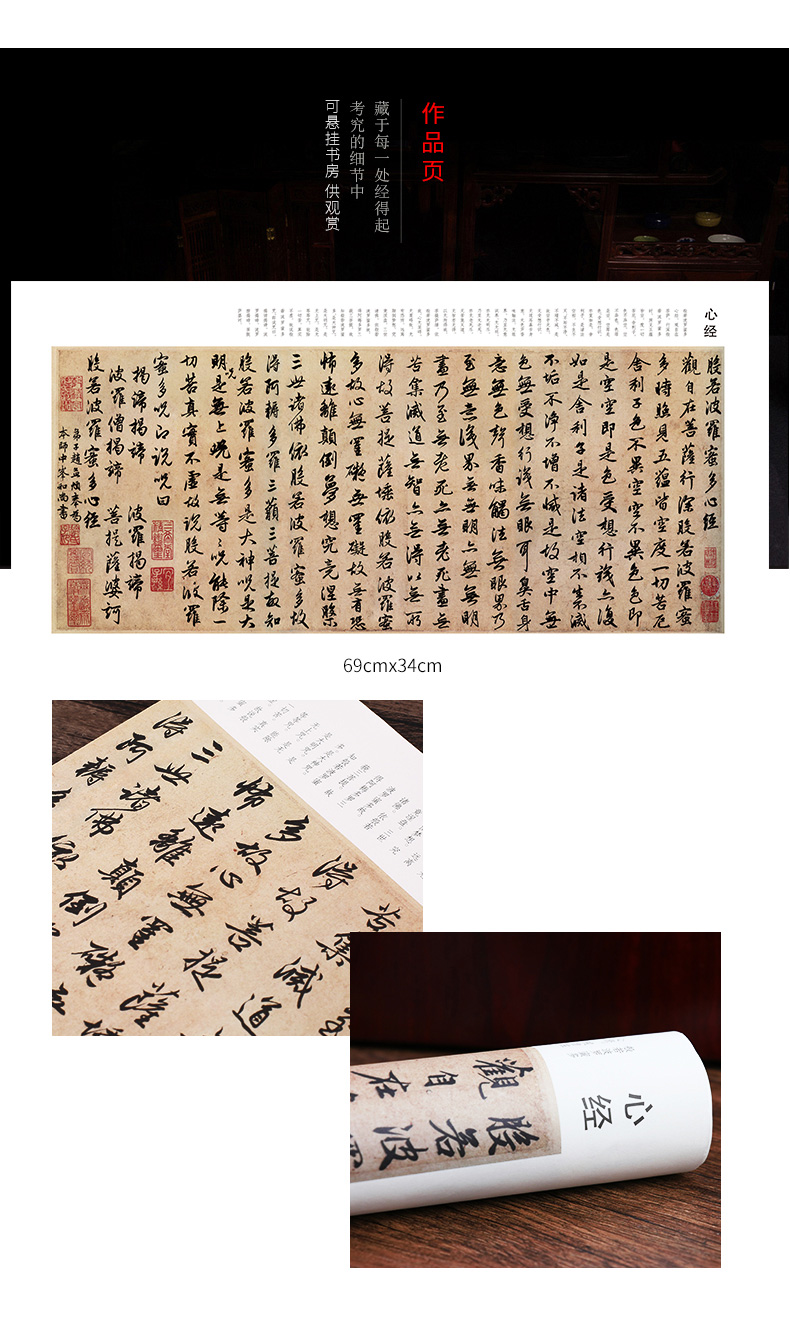 作品页
藏于每一处经得起
考究的细节中
可悬挂书房 供观赏
心经
般若波羅蜜多心經
觀自在菩薩行深般若波羅蜜
多時照見五蘊皆空度一切苦厄
舍利子色不異空空不異色色即
是空空即是色受想行識亦復
如是舍利子是諸法空相不生不滅
不垢不淨不增不減是故空中無
色無受想行識無眼耳鼻舌身
意無色聲香味觸法無眼界乃
至無意識界無無明亦無無明
盡乃至無老死亦無老死盡無
苦集滅道無智亦無得以無所
得故菩提薩埵依般若波羅蜜
多故心無罣礙無罣礙故無有恐
怖遠離顛倒夢想究竟涅槃
三世諸佛依般若波羅蜜多故
得阿耨多羅三藐三菩提故知
般若波羅蜜多是大神呪是大
明呪是無上呪是無等等呪能除一
切苦真實不虛故說般若波羅
蜜多呪即說呪曰
揭諦揭諦 波羅揭諦
波羅僧揭諦 菩提薩婆訶
般若波羅蜜多心經
弟子趙孟頫奉為
本師中峯和尚書
69cmx34cm
苦集滅道
得故菩提薩埵
多故心無罣礙
怖遠離顛倒
三世諸佛依
得阿耨多
心经
般若波羅
觀自在